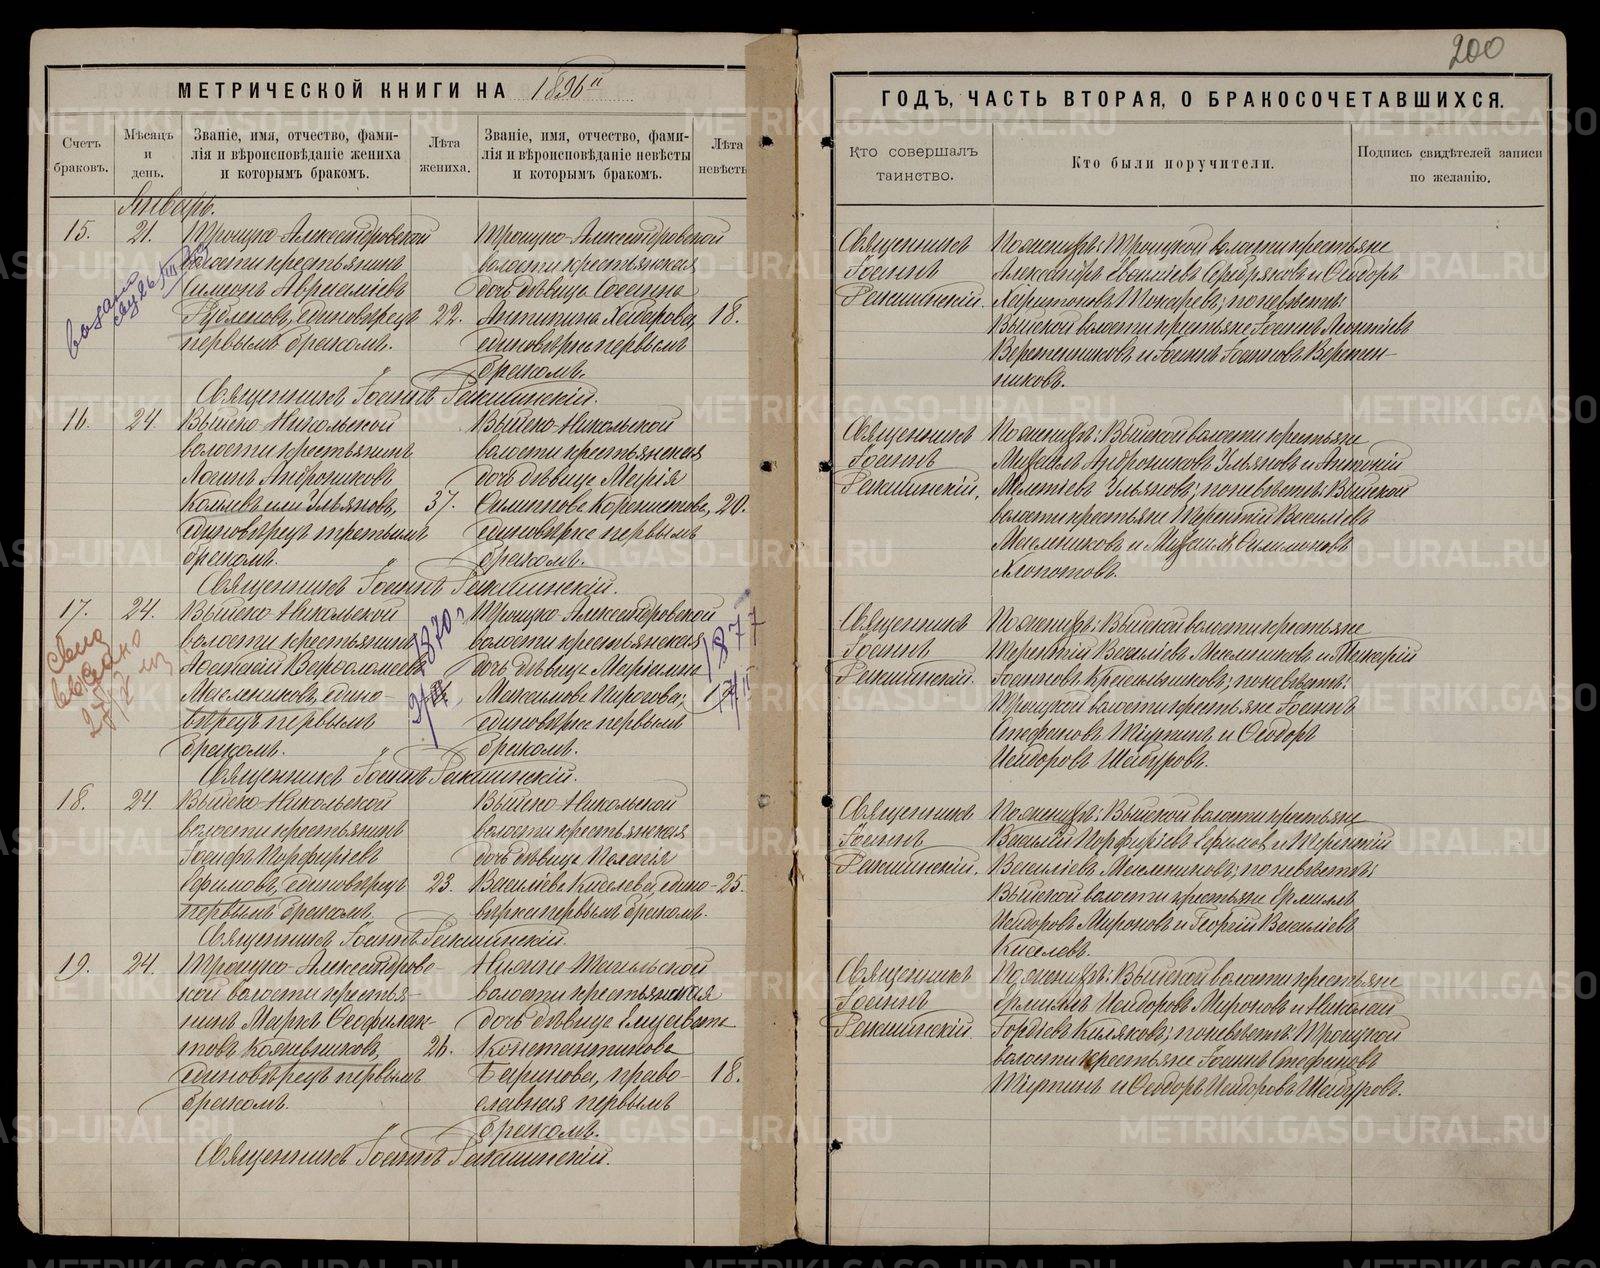 200
МЕТРИЧЕСКОЙ КНИГИ НА 1896й
ГОДЪ, ЧАСТЬ ВТОРАЯ, О БРАКОСОЧЕТАВШИХСЯ.
Счетъ браковъ.
Мѣсяцъ и день.
Званіе, имя, отчество, фами-
лія и вѣроисповѣданіе жениха
и которымъ бракомъ.
Лѣта жениха.
Званіе, имя, отчество, фами-
лія и вѣроисповѣданіе невѣсты
и которымъ бракомъ.
Лѣта невѣсты
Кто совершалъ
таинство.
Кто были поручители.
Подпись свидѣтелей записи
по желанію.
Январь.
15.
21.
Троицко-Александровской
волости крестьянинъ
Симонъ Аврааміевъ
единовѣрецъ
первымъ бракомъ.
22.
Троицко-Александровской
волости крестьянская
дочь дѣвица Сосанна
Антипина
единовѣрка первымъ
бракомъ.
18.
Священникъ Іоаннъ Ракшинскій.
Священникъ
Іоаннъ
Ракшинскій.
По женихѣ: Троицкой волости крестьяне
Александръ и Ѳеодоръ
Харитоновъ Токаревъ; по невѣстѣ:
Выйской волости крестьяне Іоаннъ Леонтіевъ
Веретенниковъ и Іоаннъ Іоанновъ Веретен-
никовъ.
16.
24
Выйско-Никольской
волости крестьянинъ
Андрониковъ
или Ульяновъ,
единовѣрецъ третьимъ
бракомъ.
37.
Выйско-Никольской
волости крестьянская
дочь дѣвица Марія
единовѣрка первымъ
бракомъ.
20.
Священникъ Іоаннъ Ракшинскій.
Священникъ
Іоаннъ
Ракшинскій.
По женихѣ: Выйской волости крестьяне
Михаилъ Андрониковъ Ульяновъ и Антоній
Мелетіевъ Ульяновъ; по невѣстѣ: Выйской
волости крестьяне Терентій Васильевъ
Масленниковъ и Михаилъ Филимоновъ
Хлопотовъ.
17.
24.
Выйско-Никольской
волости крестьянинъ
Варѳоломеевъ
Масленниковъ, едино-
вѣрецъ первымъ
бракомъ.
1870
Троицко-Александровской
волости крестьянская
дочь дѣвица Маріанна
Максимова Пирогова,
единовѣрка первымъ
бракомъ.
1877
Священникъ Іоаннъ Ракшинскій.
Священникъ
Іоаннъ
Ракшинскій.
По женихѣ: Выйской волости крестьяне
Терентій Васильевъ Масленниковъ и Макарій
Іоанновъ Красильниковъ; по невѣстѣ:
Троицкой волости крестьяне Іоаннъ
Стефановъ и Ѳеодоръ
Исидоровъ Шабуровъ.
18.
24.
Выйско-Никольской
волости крестьянинъ
Іосифъ Порфиріевъ
Ефимовъ, единовѣрецъ
первымъ бракомъ.
23.
Выйско-Никольской
волости крестьянская
дочь дѣвица Пелагія
Васильева Киселева, едино-
вѣрка первымъ бракомъ.
25.
Священникъ Іоаннъ Ракшинскій.
Священникъ
Іоаннъ
Ракшинскій.
По женихѣ: Выйской волости крестьяне
Василій Порфиріевъ Ефимовъ и Терентій
Васильевъ Масленниковъ; по невѣстѣ:
Выйской волости крестьяне Ермилъ
Исидоровъ Мироновъ и Георгій Васильевъ
Киселевъ.
19.
24.
Троицко-Александровс-
кой волости крестья-
нинъ Маркъ Ѳеофилак-
товъ Кожевниковъ,
единовѣрецъ первымъ
бракомъ.
26.
Нижне Тагильской
волости крестьянская
дочь дѣвица Елисавета
Константинова
Баринова, право-
славная первымъ
бракомъ.
18.
Священникъ Іоаннъ Ракшинскій.
Священникъ
Іоаннъ
Ракшинскій.
По женихѣ: Выйской волости крестьяне
Ермилъ Исидоровъ Мироновъ и Николай
Гордіевъ Киляковъ; по невѣстѣ: Троицкой
волости крестьяне Іоаннъ Стефановъ
и Ѳеодоръ Исидоровъ Шабуровъ.
METRIKI.GASO-URAL.RU